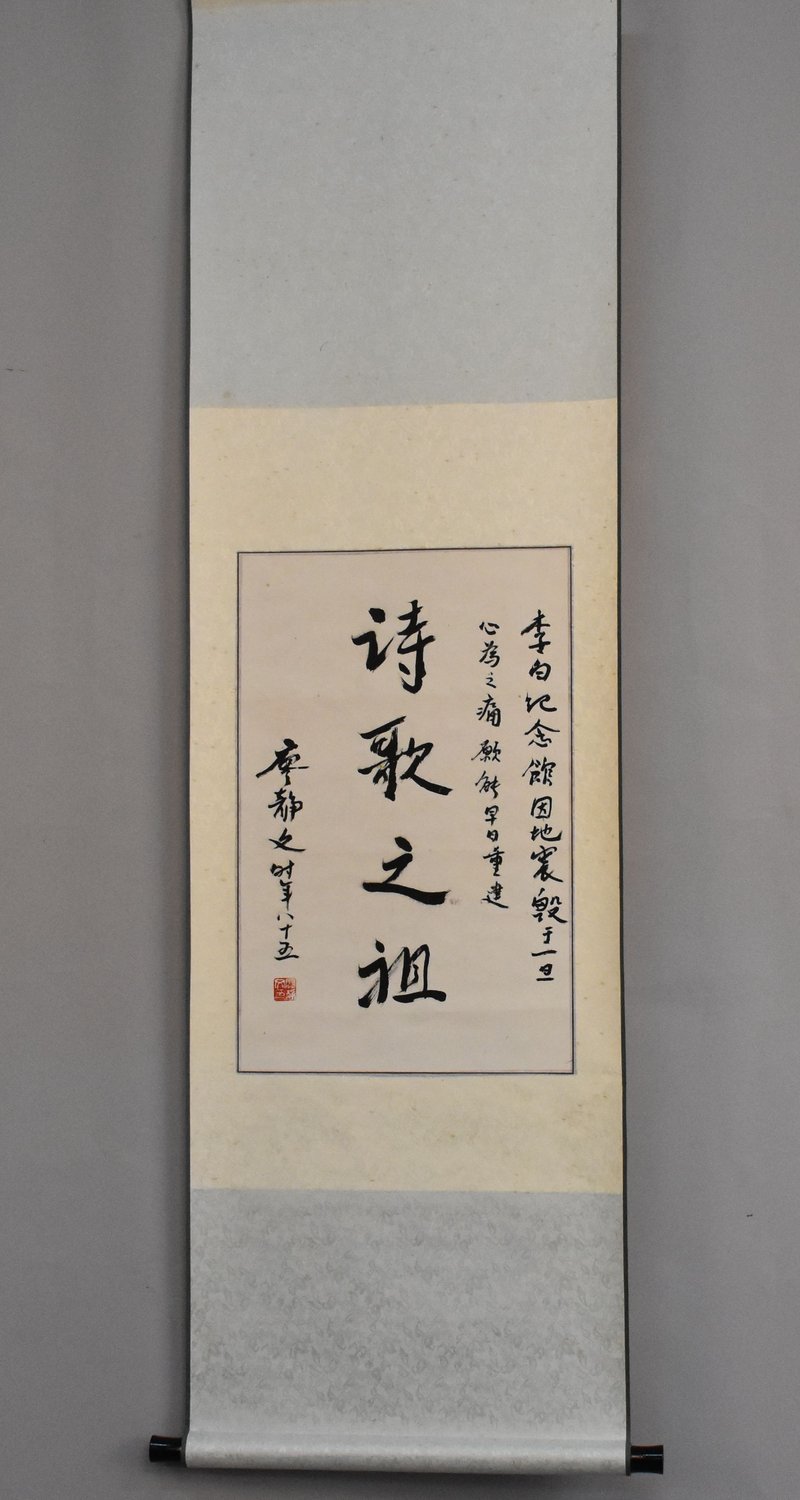 李白纪念馆因地震毁于一旦
心为之痛 愿能早日重建
诗歌之祖
廖静文时年八十五